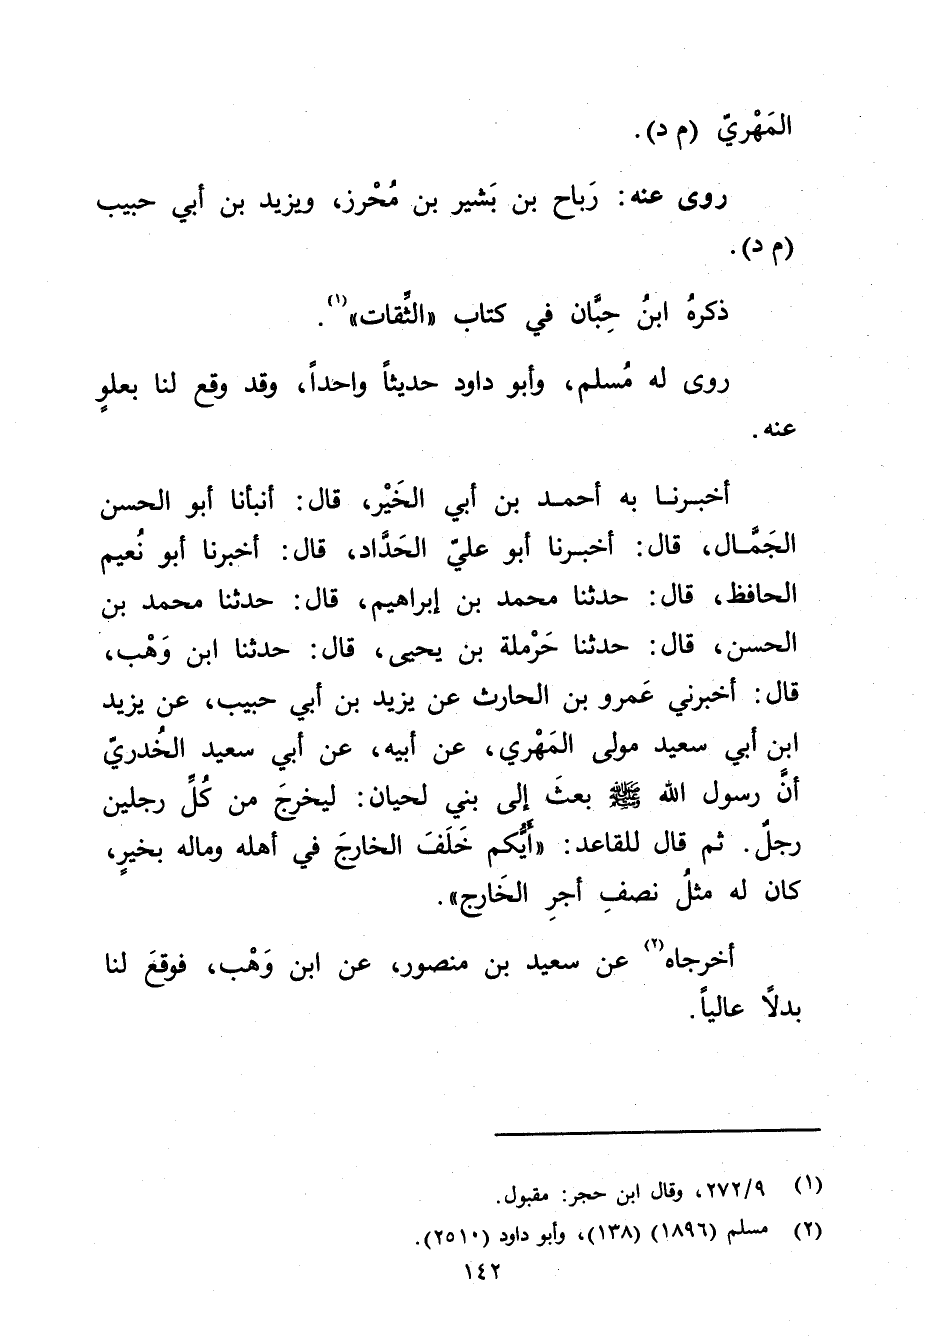 المَهْريّ (م د).
روى عنه: رَباح بن بَشير بن مُحْرز، ويزيد بن أبي حبيب
(م د).
ذكرهُ ابنُ حِبَّان في كتاب «الثِّقات»(١).
روى له مُسلم، وأبو داود حديثاً واحداً، وقد وقع لنا بعلوٍ
عنه.
أخبرنا به أحمد بن أبي الخَيْر، قال: أنبأنا أبو الحسن
الجَمَّال، قال: أخبرنا أبو عليّ الحَدَّاد، قال: أخبرنا أبو نُعيم
الحافظ، قال: حدثنا محمد بن إبراهيم، قال: حدثنا محمد بن
الحسن، قال: حدثنا حَرْملة بن يحيى، قال: حدثنا ابن وَهْب،
قال: أخبرني عَمرو بن الحارث عن يزيد بن أبي حبيب، عن يزيد
ابن أبي سعيد مولى المَهْري، عن أبيه، عن أبي سعيد الخُدريّ
أنَّ رسول الله ﷺ بعثَ إلى بني لحيان: ليخرجَ من كُلِّ رجلين
رجلٌ. ثم قال للقاعد: «أَيُّكم خَلَفَ الخارجَ في أهله وماله بخيرٍ،
كان له مثلُ نصفِ أجرِ الخَارج».
أخرجاه(٢) عن سعيد بن منصور، عن ابن وَهْب، فوقعَ لنا
بدلًا عالياً.
(١) ٢٧٢/٩، وقال ابن حجر: مقبول.
(٢) مسلم (١٨٩٦) (١٣٨)، وأبو داود (٢٥١٠).
١٤٢